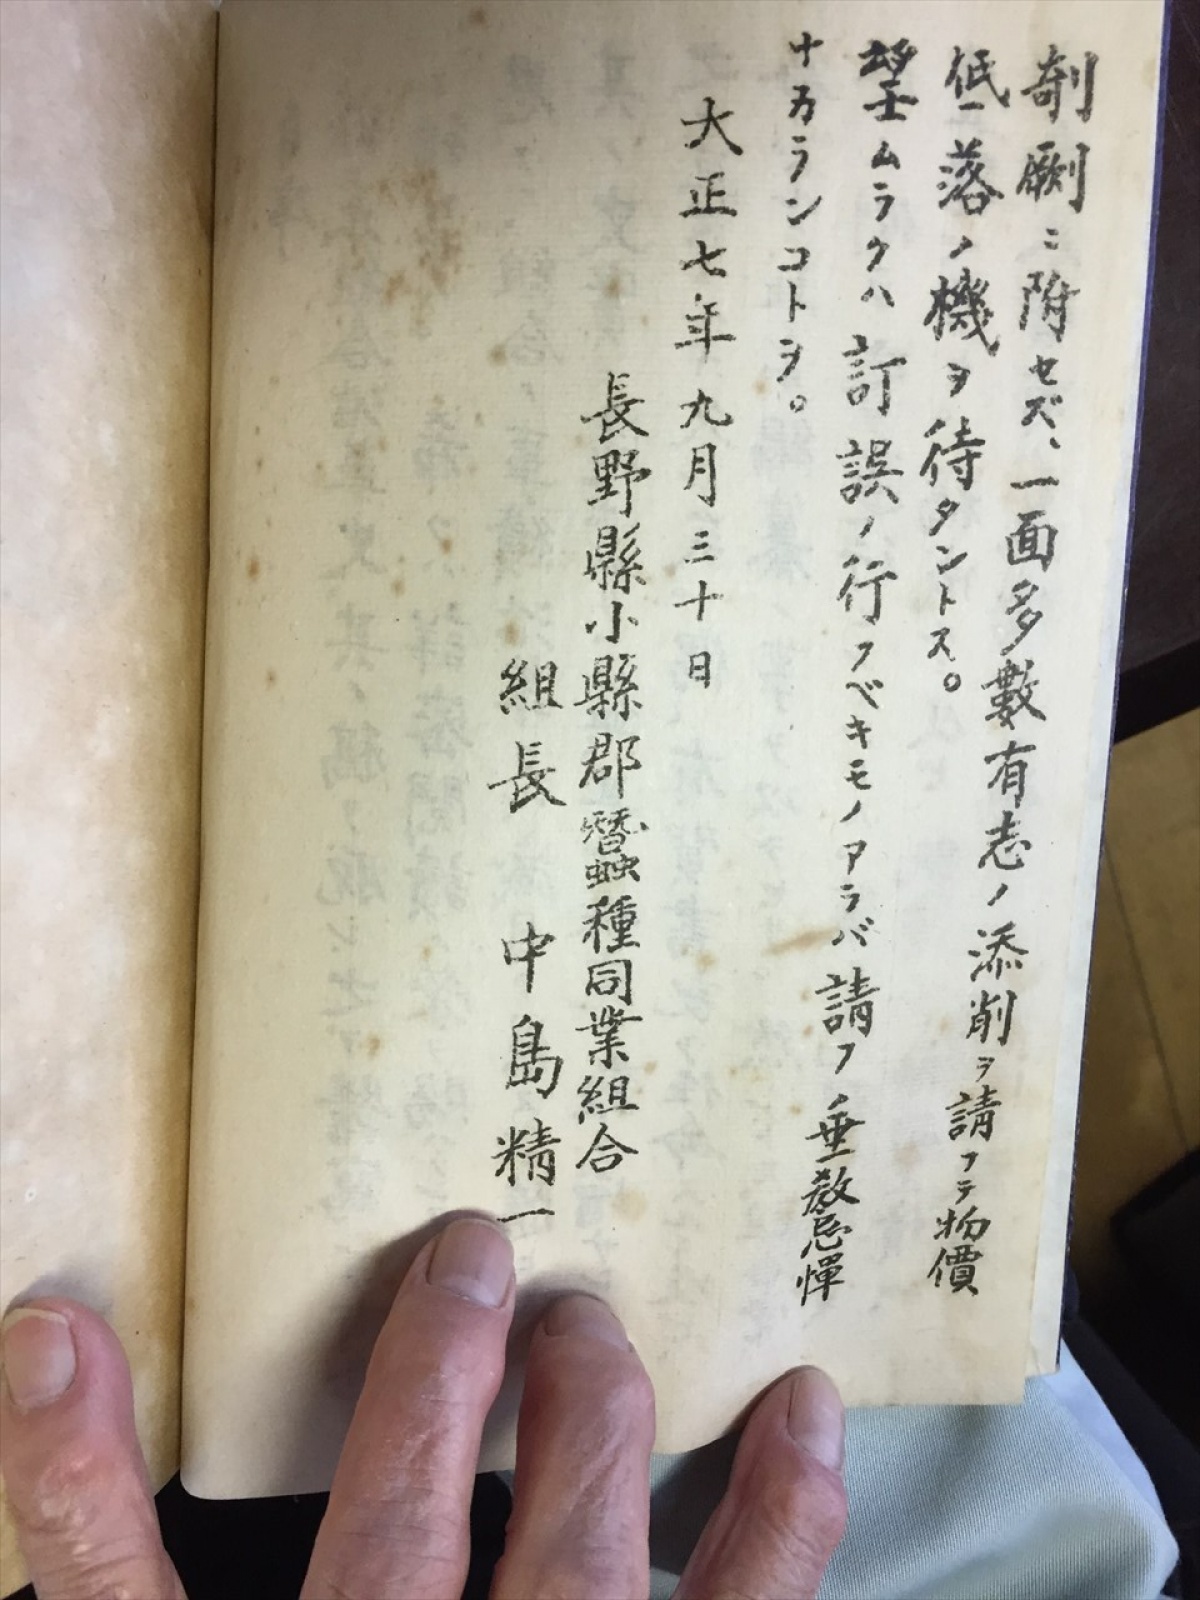 剞劂ニ附セズ、一面多數有志ノ添削ヲ請フテ物價
低落ノ機ヲ待タントス。
望ムラクハ訂誤ノ行フベキモノアラバ請フ、垂教忌憚
ナカランコトヲ。
大正七年九月三十日
長野縣小縣郡蠶種同業組合
組長 中島精一